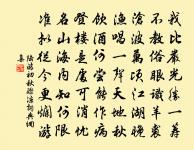 我比嚴光勝一籌
不教俗眼識羊裘
滄波萬頃江湖晚
漁唱一聲天地秋
飲酒何嘗能作病
登樓是處可消憂
名山海內知何限
準擬從今更爛遊
陸游初秋驟涼詞典網
集